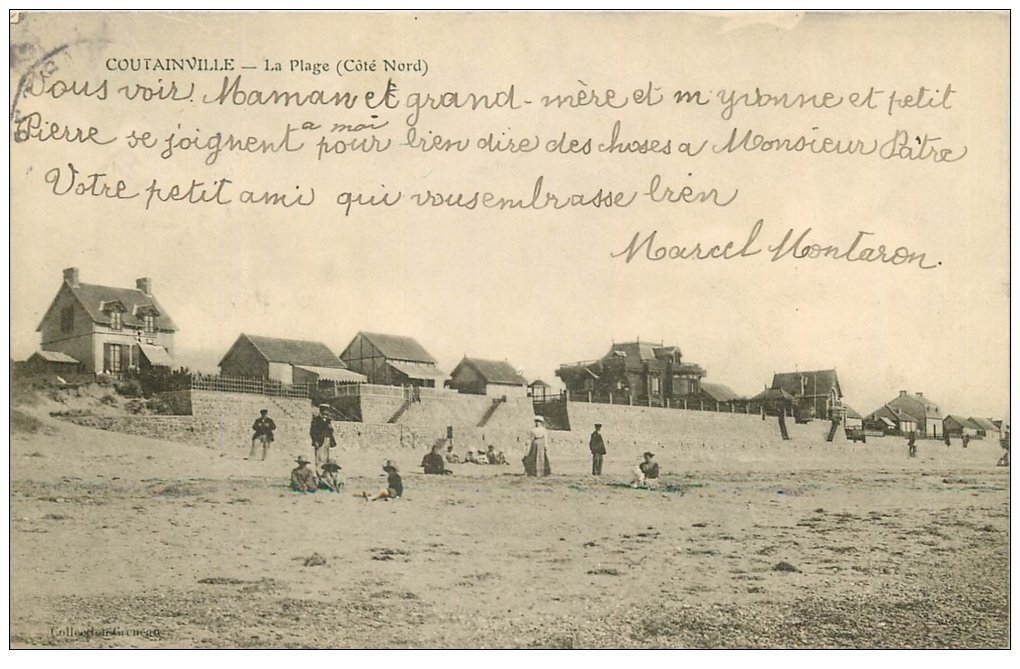 COUTAINVILLE — La Plage (Côté Nord)
Vous voir. Maman et grand-mère et m yvonne et petit
Pierre se joignent a moi pour bien dire des choses a Monsieur Pâtre
Votre petit ami qui vous embrasse bien
Marcel Montaron.
Collection